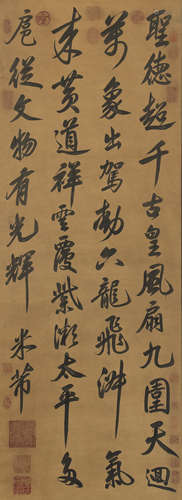 聖德超千古皇風扇九圍天迴
萬象出駕動六龍飛淑氣
来黄道祥雲覆紫微太平多
扈從文物有光輝 米芾